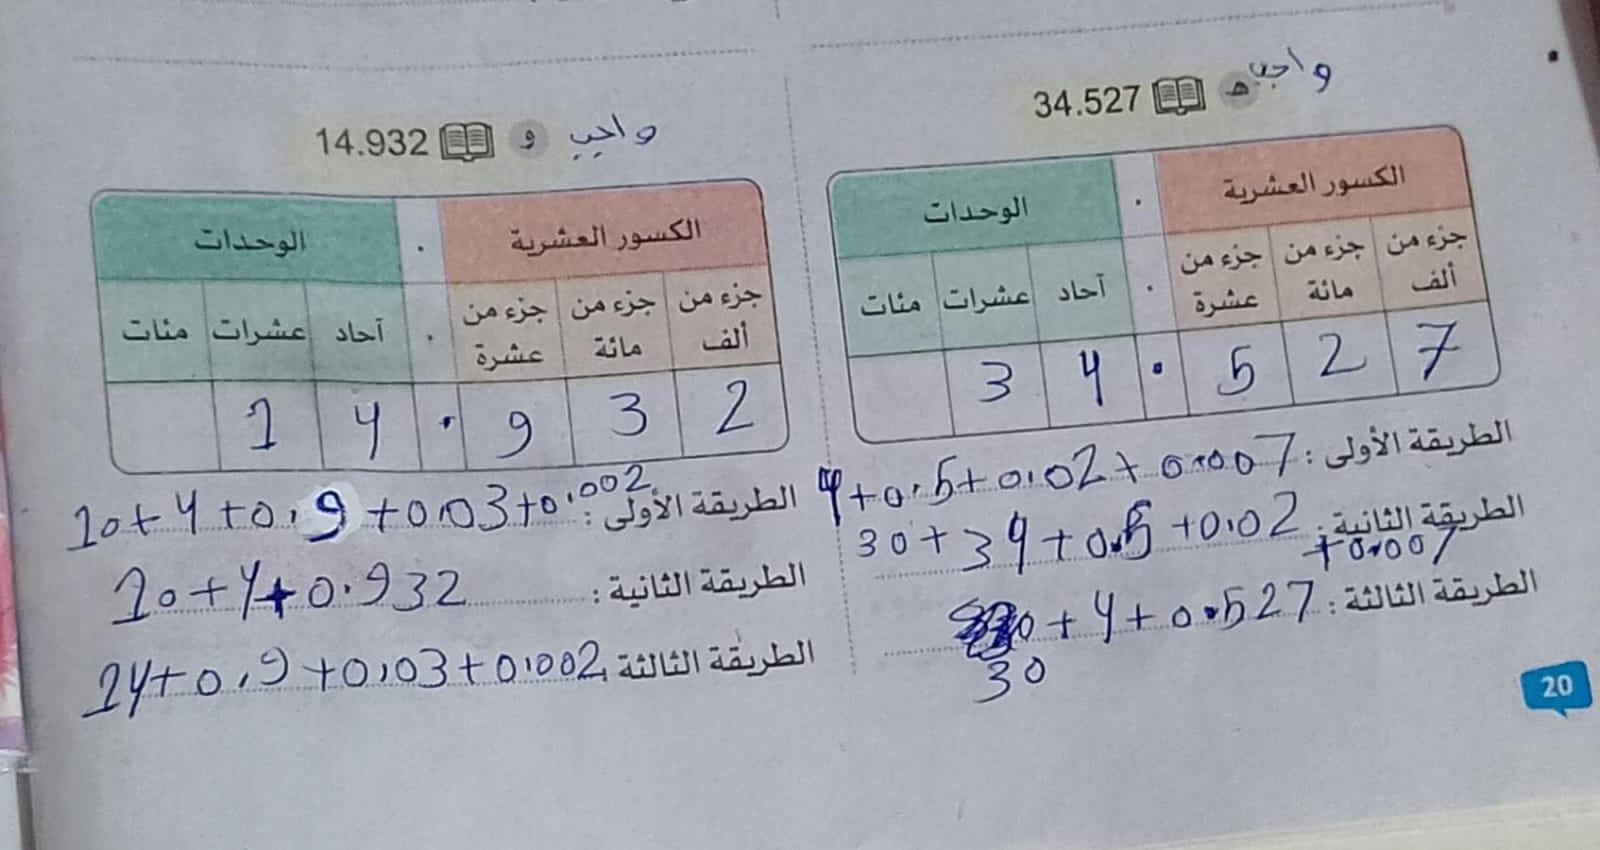 واجب هـ 34.527
الكسور العشرية . الوحدات
جزء من ألف جزء من مائة جزء من عشرة . آحاد عشرات مئات
3 4 . 5 2 7
الطريقة الأولى : 4+0.5+0.02+0.007
30+
الطريقة الثانية : 34+0.5+0.02
+0.007
الطريقة الثالثة : +4+0.527
30
واجب و 14.932
الكسور العشرية . الوحدات
جزء من ألف جزء من مائة جزء من عشرة . آحاد عشرات مئات
1 4 . 9 3 2
الطريقة الأولى : 10+4+0.9+0.03+0.002
الطريقة الثانية : 10+4+0.932
الطريقة الثالثة 14+0.9+0.03+0.002
20